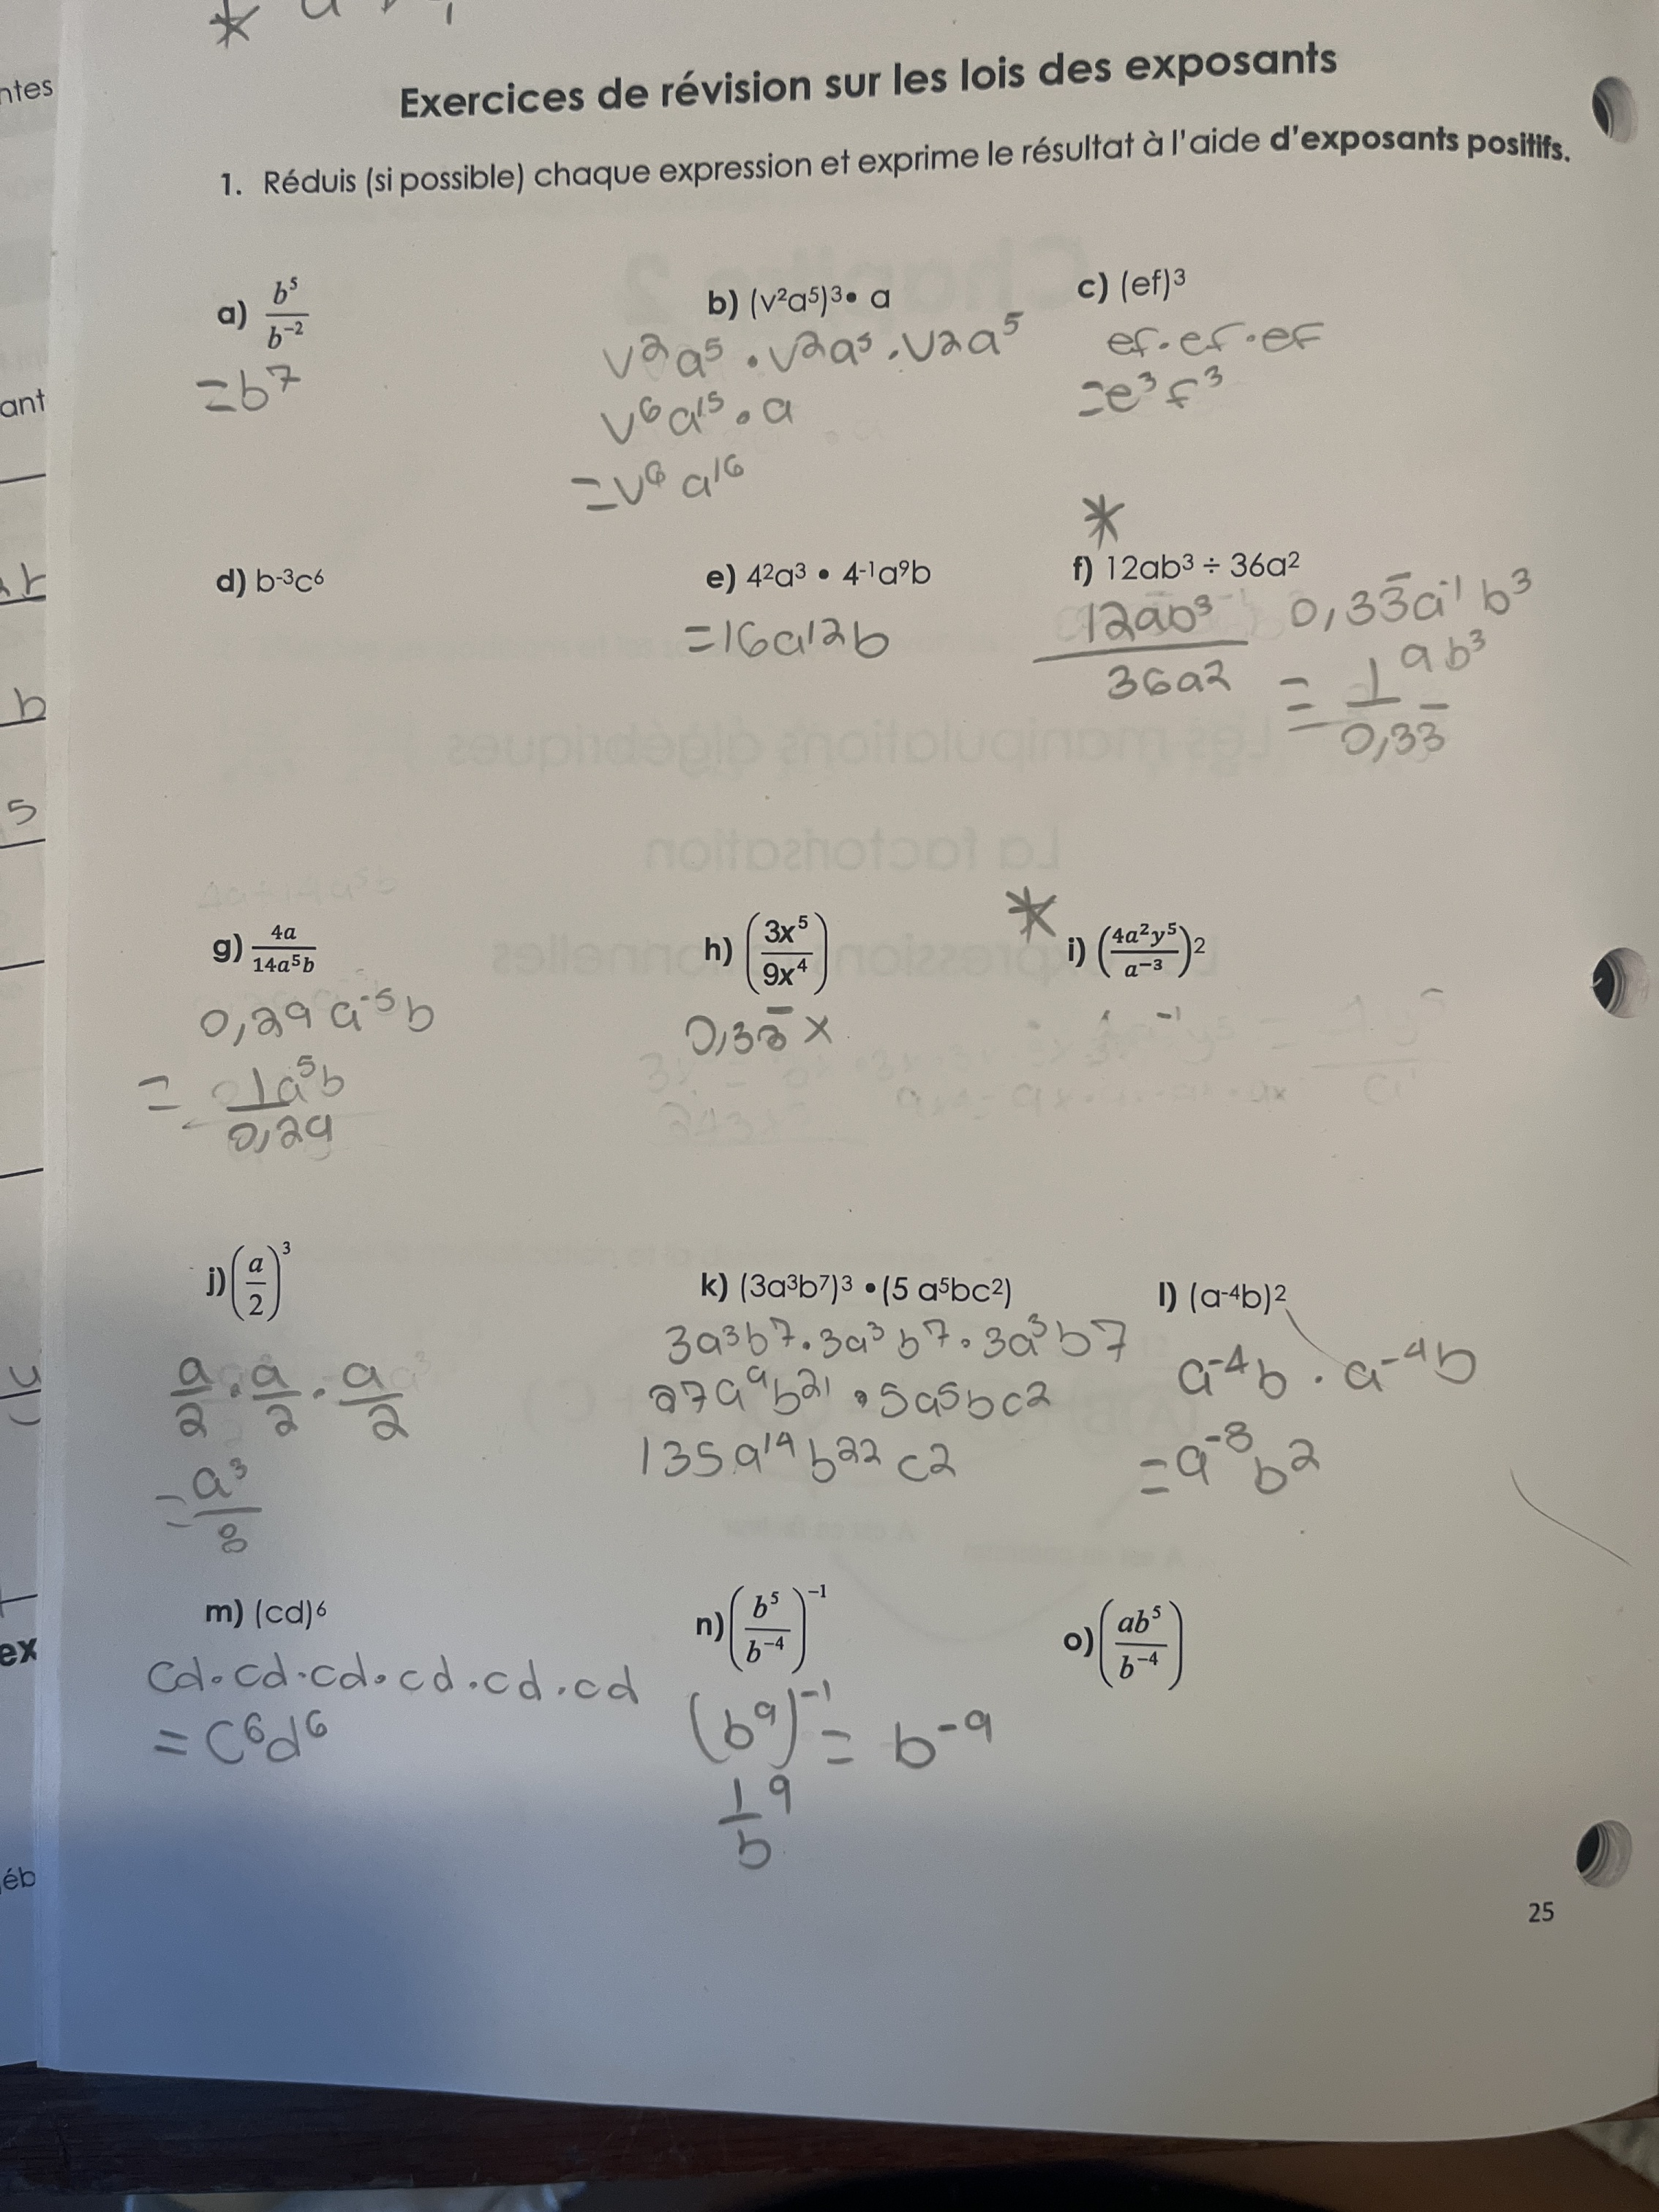 Exercices de révision sur les lois des exposants
1. Réduis (si possible) chaque expression et exprime le résultat à l'aide d'exposants positifs.
a) b⁵/b⁻²
=b⁷
b) (v²a⁵)³• a
v²a⁵ • v²a⁵ • v2a⁵
v⁶a¹⁵ • a
=v⁶a¹⁶
c) (ef)³
ef•ef•ef
=e³f³
d) b⁻³c⁶
e) 4²a³ • 4⁻¹a⁹b
=16a12b
*
f) 12ab³ ÷ 36a²
12ab³/36a2
0,33̅a⁻¹b³
= 1ab³/0,33̅
g) 4a/14a⁵b
0,29a⁻⁵b
= 1a⁵b/0,29
h) (3x⁵/9x⁴)
0,33̅x
*
i) (4a²y⁵/a⁻³)²
j) (a/2)³
a/2 • a/2 • a/2
= a³/8
k) (3a³b⁷)³ •(5 a⁵bc²)
3a³b⁷•3a³b⁷•3a³b7
27a⁹b²¹ • 5a5bc2
135a¹⁴b²²c2
l) (a⁻⁴b)²
a⁻⁴b • a⁻⁴b
=a⁻⁸b²
m) (cd)⁶
cd•cd•cd•cd•cd•cd
= c⁶d⁶
n) (b⁵/b⁻⁴)⁻¹
(b⁹)⁻¹ = b⁻⁹
1⁹/b
o) (ab⁵/b⁻⁴)
25
ntes
ant
b
5
ex
éb